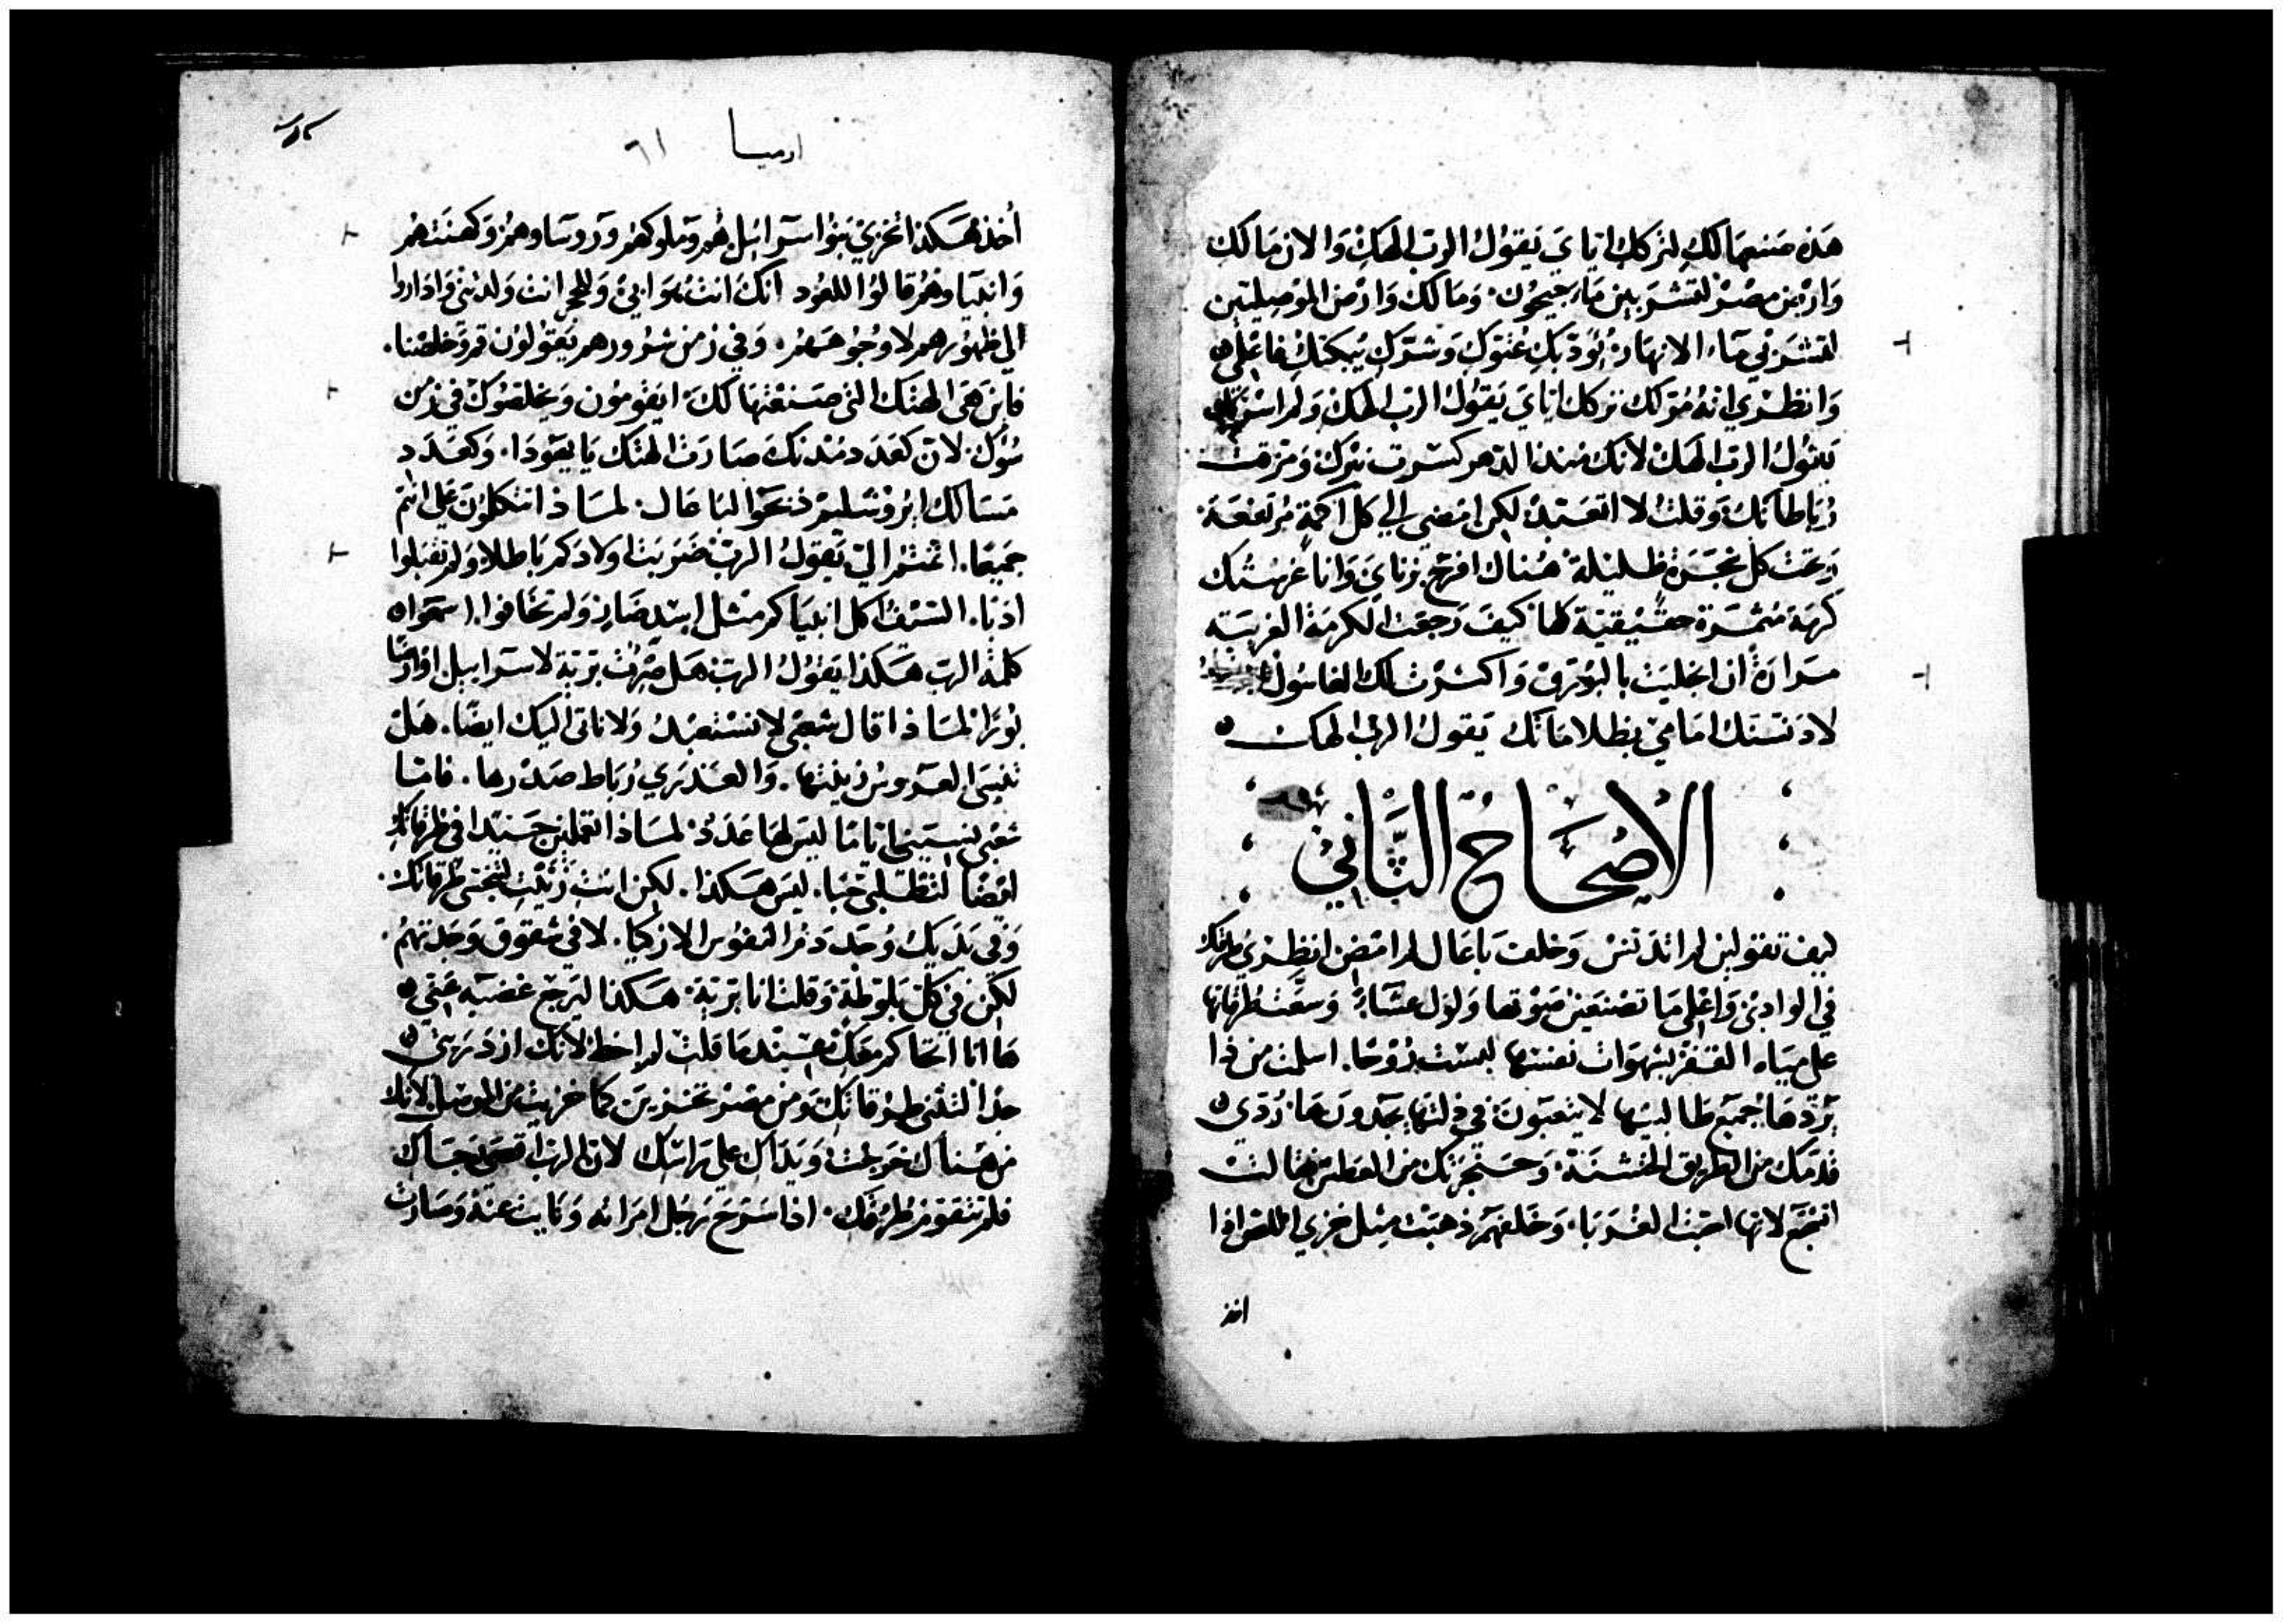 هَذه صَنعهَا لكِ لتركك اياىَ يَقوُل الربّ الهكِ وَالان مَا لكِ
وَارض مصر لتشربين مَاء جيحُون وَمَا لكَ وَارض الموصليين
لتشربي ماء الانهار يُؤدبكِ عُتوكِ وَشرّكِ يُبكتكِ فاعلمى
وَانظري انهُ مُرّ لكِ تركك اياىَ يَقوُل الربّ الهك وَلم
يَقوُل الربّ الهك لانك مُنذ الدهر كسّرت نيرك وَمزقت
رُبَاطاتك وَقلت لا اتعَبد لكن امضى الي كل اكمَة مُرتفعَة
وَتحت كل شجرَة ظليلة هُناك افرح بزناىَ وَانا غرستك
كرمَة مُثمرة حقيقية كلها كيفَ رَجعت الكرمَة الغريبَه
مَرارَة ان اغتليت بالبُورق وَاكثرت لك الغاسُول
لا دَنستك امَامى بظلامَاتك يَقول الرب الهك
الاصْحَاحُ الثَّانِي
كيف تقولين لم اتدَنس وَخلف باعَال لم امض انظري طرقك
في الوادىْ وَاعلمى مَا تصْنعَين صَوْتها وَلوَل عشاء وَسعَت طرقاتها
على ميَاه القفر بشهوَات نفسها ليسَت رُوحًا. اسلمت من ذا
يَرّدهَا جميَع طَالبيهَا لا يتعبوُنَ فى ذلتها يجدونَهَا رُدّي
قدمَك من الطريق الخشنة وَحنجرَتك من العَطش فقالت
اتشجع لانها احبّت الغُربَا. وَخَلفهم ذهبَت مثل خزي اللص اذا
اخذ
ارميا
٦١
أخذ هَكذا يخزيْ بَنوُ اسرائيل هُم وَملوكهُم وَروسَاوهمُ وَكهنتهُم
وَانبيَاوهُم قالوُا للعُود انكَ انت هوَ ابىْ وَللحجر انت وَلدتنى وَاداروا
الىّ ظهُورهم لا وجُوهَهُم. وَفي زمن شرُورهم يَقوُلوُن قم وَخلصْنا.
فاين هىَ الهتك التى صَنعْتهَا لكَ ايقومُون وَيخلصُوكَ في زمن
سُوك لان كعَدَد مُدنكَ صَارَت الهتك يَا يهوَدا. وَكعَدَد
مَسَالك ايرُوشليم ذبحوَا لبَاعَال. لمَاذا تتكلوُن علىّ انتم
جميعًا. اثمتم الىّ يَقولُ الربّ ضرَبت اولادكم باطلا وَلم تقبَلوا
ادبًا. السَيف اكل انبيَاكم مثل اسَد ضَار وَلم تخَافوا. اسمعَوا
كلمة الربّ هَكذا يَقوُلُ الرب هَل صرت بَرّية لاسرَاييل او ارضًا
بُورًا لمَاذا قال شعبى لا نسْتعبدُ وَلا ناتى اليكَ ايضًا. هَل
تنسَى العَروس زينتها. وَالعَذري رُبَاط صَدْرها. فامّا
شعبى نسيَنى ايامًا ليس لهَا عَدَدُ لمَاذا تعملين جيدا فى طرقاتك
ايضًا لتطلبى حُبا. ليس هكذا. لكن انت
وَفي يَديك وُجَد دَمُ النفوُس الازكيا. لا فى شقوُق وَجَدتهمُ
لكن في كلّ بلوطة وَقلت انا برّية هَكذا ليرَجع غضبَه عَني
هَا انا احَاكم مَعَك عندمَا قلت لم اخط لانكَ ازدَريتى
جدًا لتثنى طرُقاتك وَمن مصرْ تخزين كما خزيت من الموصل لانك
من هُناك خرَجت وَيدَاك على رَاسك لان الرب اقصَى
فلم تتقومْ طرُقك. اذا سَرّح رَجُل امرَاته وَغابت عَنهُ وَصَارَت